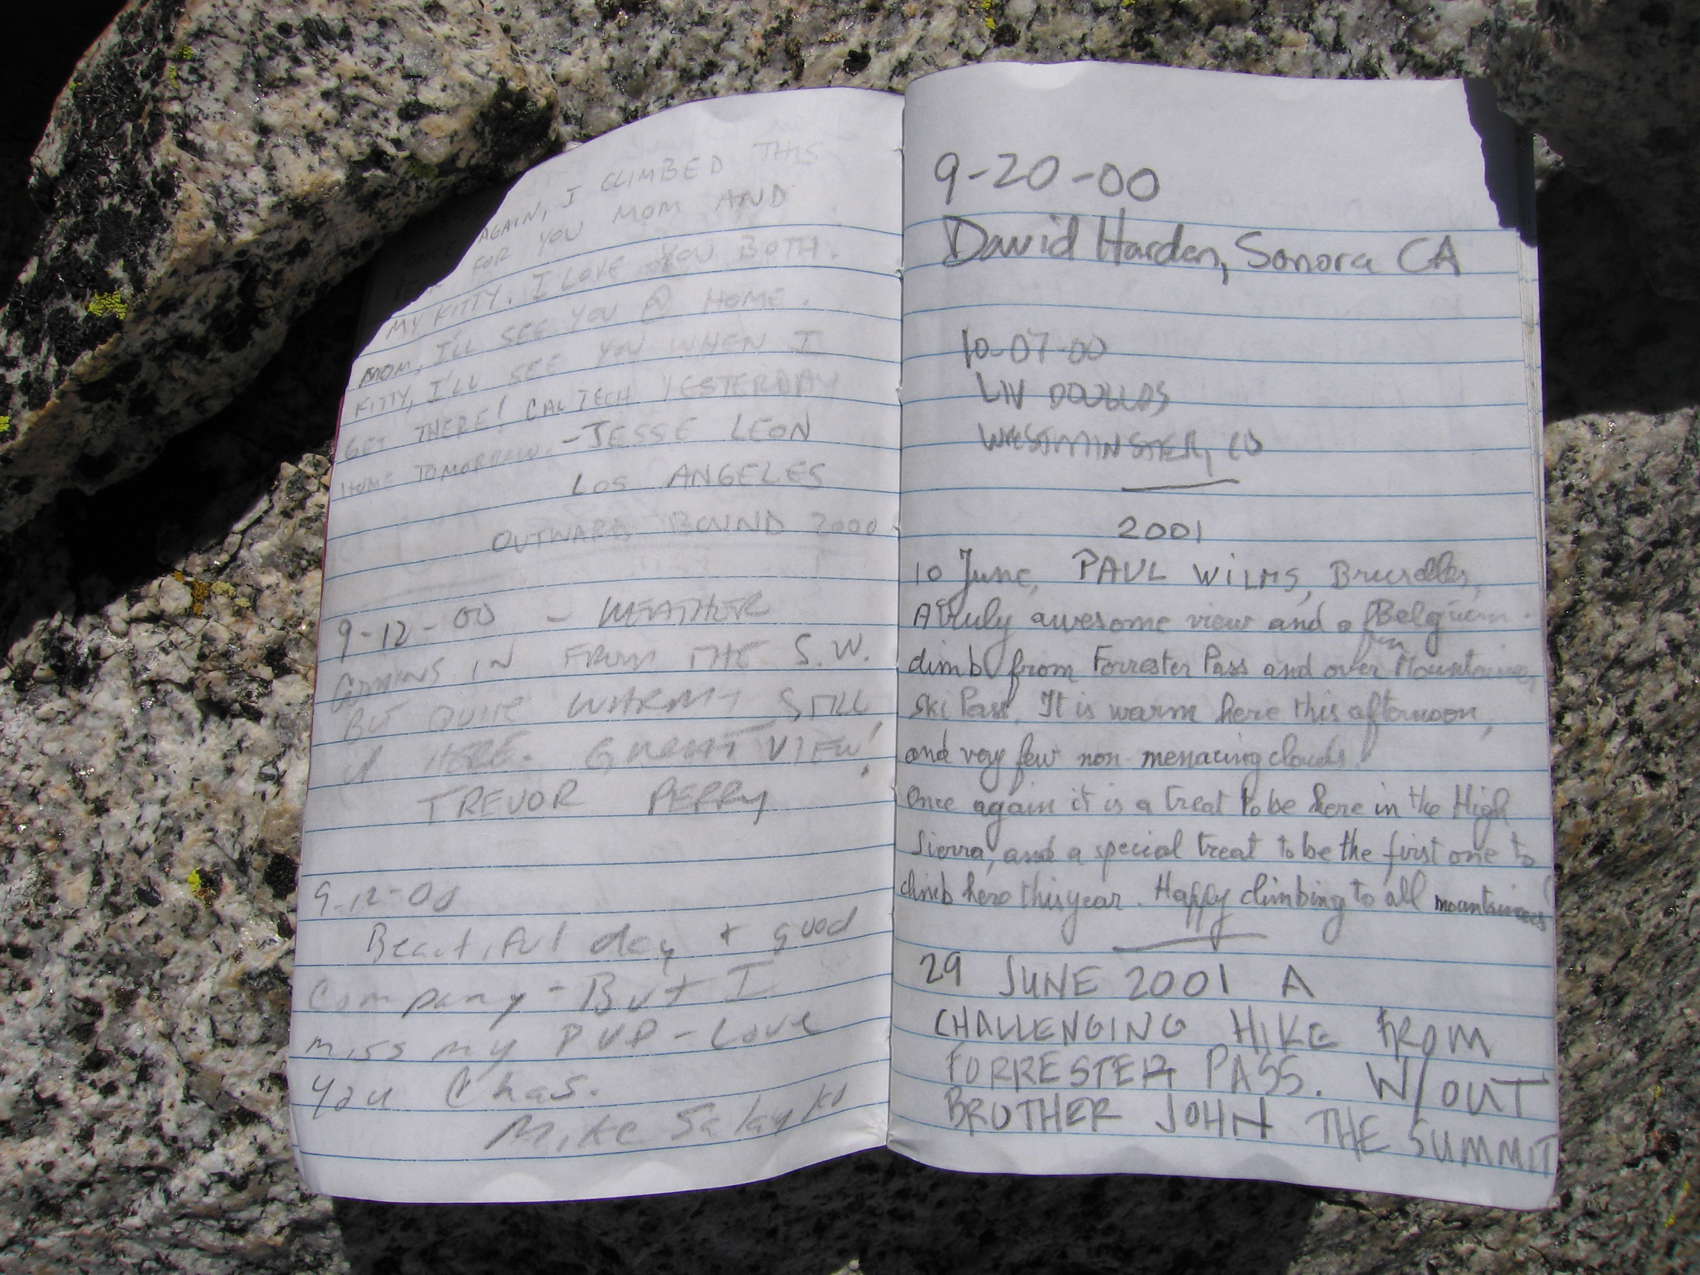 AGAIN, I CLIMBED THIS
FOR YOU MOM AND
MY KITTY. I LOVE YOU BOTH.
MOM, I'LL SEE YOU @ HOME.
KITTY, I'LL SEE YOU WHEN I
GET THERE! CAL TECH YESTERDAY
HOME TOMORROW. -JESSE LEON
LOS ANGELES
OUTWARD BOUND 2000
9-12-00 - WEATHER
COMING IN FROM THE S.W.
BUT QUITE WARM STILL
HERE. GREAT VIEW!
TREVOR PERRY
9-12-00
Beautiful day + good
Company - But I
miss my PUP - Love
you Chas.
Mike
9-20-00
David Harden, Sonora CA
10-07-00
LIV DOUGLAS
WESTMINSTER, CO
2001
10 June, PAUL WILMS, Bruxelles,
A truly awesome view and a fun Belgium.
climb from Forrester Pass and over Mountaineer
Ski Pass. It is warm here this afternoon,
and very few non-menacing clouds.
Once again it is a treat to be here in the High
Sierra, and a special treat to be the first one to
climb here this year. Happy climbing to all mountaineers!
29 JUNE 2001 A
CHALLENGING HIKE FROM
FORRESTER PASS. W/OUT
BROTHER JOHN THE SUMMIT